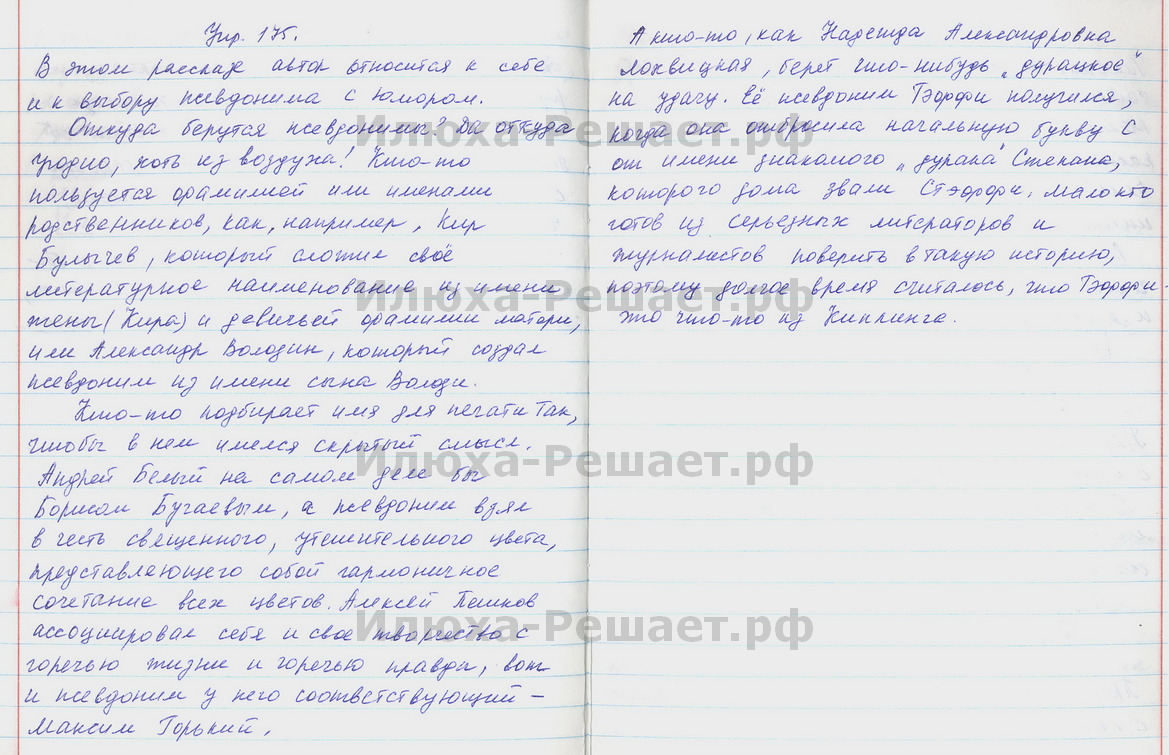 Упр. 175.
В этом рассказе автор относится к себе
и к выбору псевдонима с юмором.
Откуда берутся псевдонимы? Да откуда
угодно, хоть из воздуха! Кто-то
пользуется фамилией или именами
родственников, как, например, Кир
Булычев, который сложил своё
литературное наименование из имени
жены (Кира) и девичьей фамилии матери,
или Александр Володин, который создал
псевдоним из имени сына Володи.
Кто-то подбирает имя для печати так,
чтобы в нем имелся скрытый смысл.
Андрей Белый на самом деле был
Борисом Бугаевым, а псевдоним взял
в честь священного, утешительного цвета,
представляющего собой гармоничное
сочетание всех цветов. Алексей Пешков
ассоциировал себя и свое творчество с
горечью жизни и горечью правды, вот
и псевдоним у него соответствующий –
Максим Горький.
А кто-то, как Надежда Александровна
Лохвицкая, берет что-нибудь „дурацкое"
на удачу. Её псевдоним Тэффи получился,
когда она отбросила начальную букву С
от имени знакомого „дурака" Степана,
которого дома звали Стэффи. Мало кто
готов из серьезных литераторов и
журналистов поверить в такую историю,
поэтому долгое время считалось, что Тэффи -
это что-то из Киплинга.
Илюха-Решает.рф
Илюха-Решает.рф
Илюха-Решает.рф
Илюха-Решает.рф